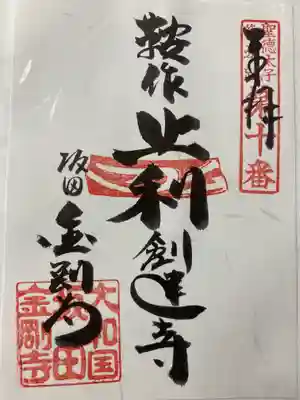 奉拝
聖徳太子
第十番
鞍作
止利
創建寺
坂田
金剛寺
大和国
坂田
金剛寺